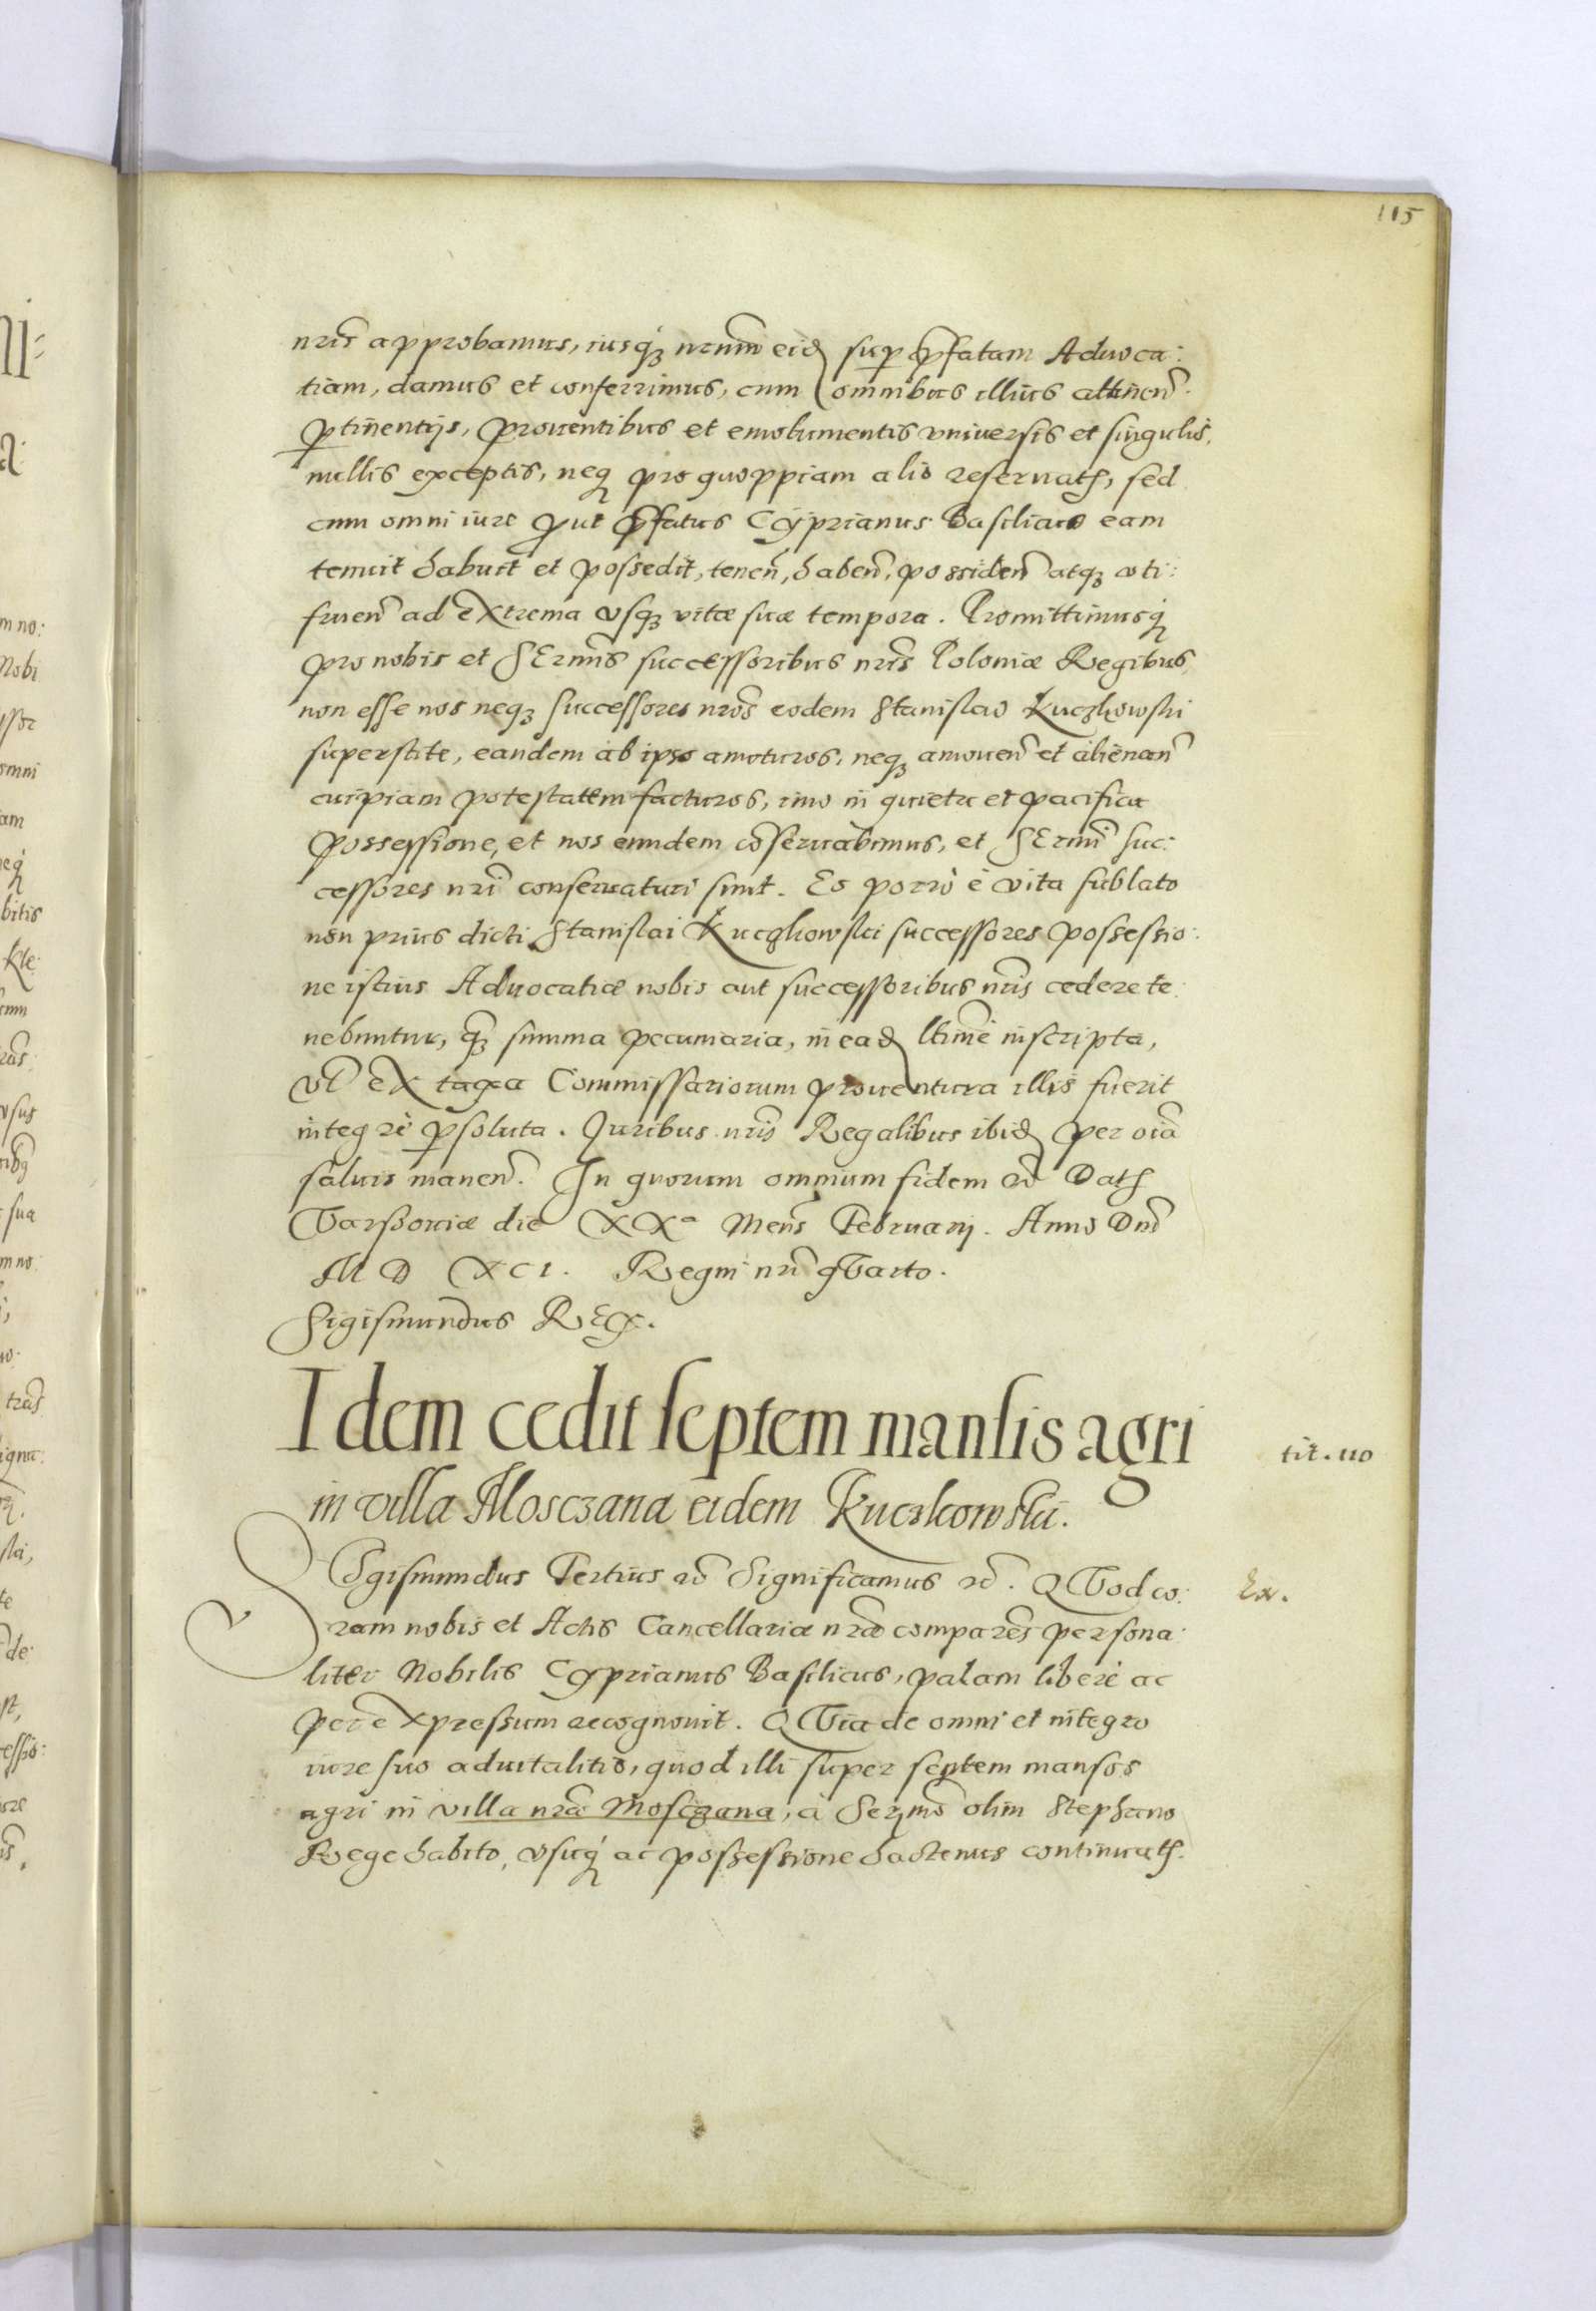 115
nrīs approbamus, iusq́ꝫ nrum̄ eid super p̄fatam Aduoca:
tiam, damus et conferrimus, cum omnibus illius attinen̄.
ꝑtinentijs, prouentibus et emolumentis vniuersis et singulis,
nullis exceptis, neq pro quoppiam alio reseruatꝭ, sed
cum omni iure prout p̄fatus Cyprianus Basilicus eam
tenuit habuit et possedit, tenen̄, haben̄, possiden̄ atqꝫ vti:
fruen̄ ad extrema vsqꝫ vitæ suæ tempora. Promittimusq́
pro nobis et SErmīs successoribus nrīs Poloniæ Regibus,
non esse nos neqꝫ successores nrōs eodem Stanislao Kuczkowski
superstite, eandem ab ipso amoturos, neqꝫ amouen̄ et alienan̄
cuipiam potestatem facturos, imo in quieta et pacifica
possessione, et nos eundem cōseruabimus, et SErmī suc:
cessores nrī conseruaturi sunt. Eo porrò è vita sublato
non prius dicti Stanislai Kuczkowski successores possessio:
ne istius Aduocatiæ nobis aut successoribus nrīs cedere te:
nebuntur, qꝫ summa pecuniaria, in ead ltimē inscripta,
vl̄ ex taxa Commissariorum prouentura illis fuerit
integrè ꝑsoluta. Juribus nrīs Regalibus ibid per oīa
saluis manen̄. In quorum omnium fidem etc̄ Datꝭ
Varssouiæ die XXa Mens̄ Februarij. Anno Dnī
M D XCI. Regni nrī qVarto.
Sigismundus REX.
Idem cedit septem mansis agri
tit. uo
in villa Mosczana eidem Kuczkowski.
SIgismundus Tertius etc̄ Significamus etc̄. QVod co:
Ex.
ram nobis et Actis Cancellariæ nrǣ comparēs persona:
liter Nobilis Cyprianus Basilicus, palam liberè ac
per expressum recognouit. QVia de omni et integro
iure suo aduitalitio, quod illi super septem mansos
agri in villa nrā Mosczana, à Serīmo olim Stephano
Rege habito, vsuq́ ac possessione hactenus continuatꝭ.